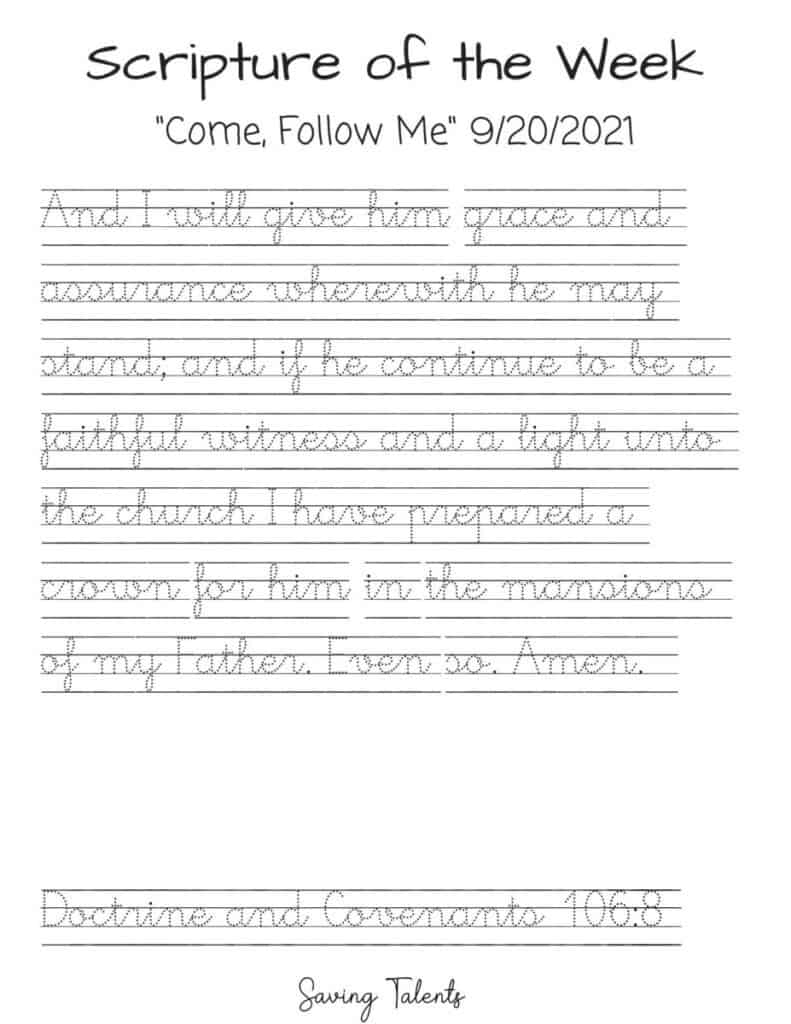 Scripture of the Week
"Come, Follow Me" 9/20/2021
And I will give him grace and
assurance wherewith he may
stand; and if he continue to be a
faithful witness and a light unto
the church I have prepared a
crown for him in the mansions
of my Father. Even so. Amen.
Doctrine and Covenants 106:8
Saving Talents